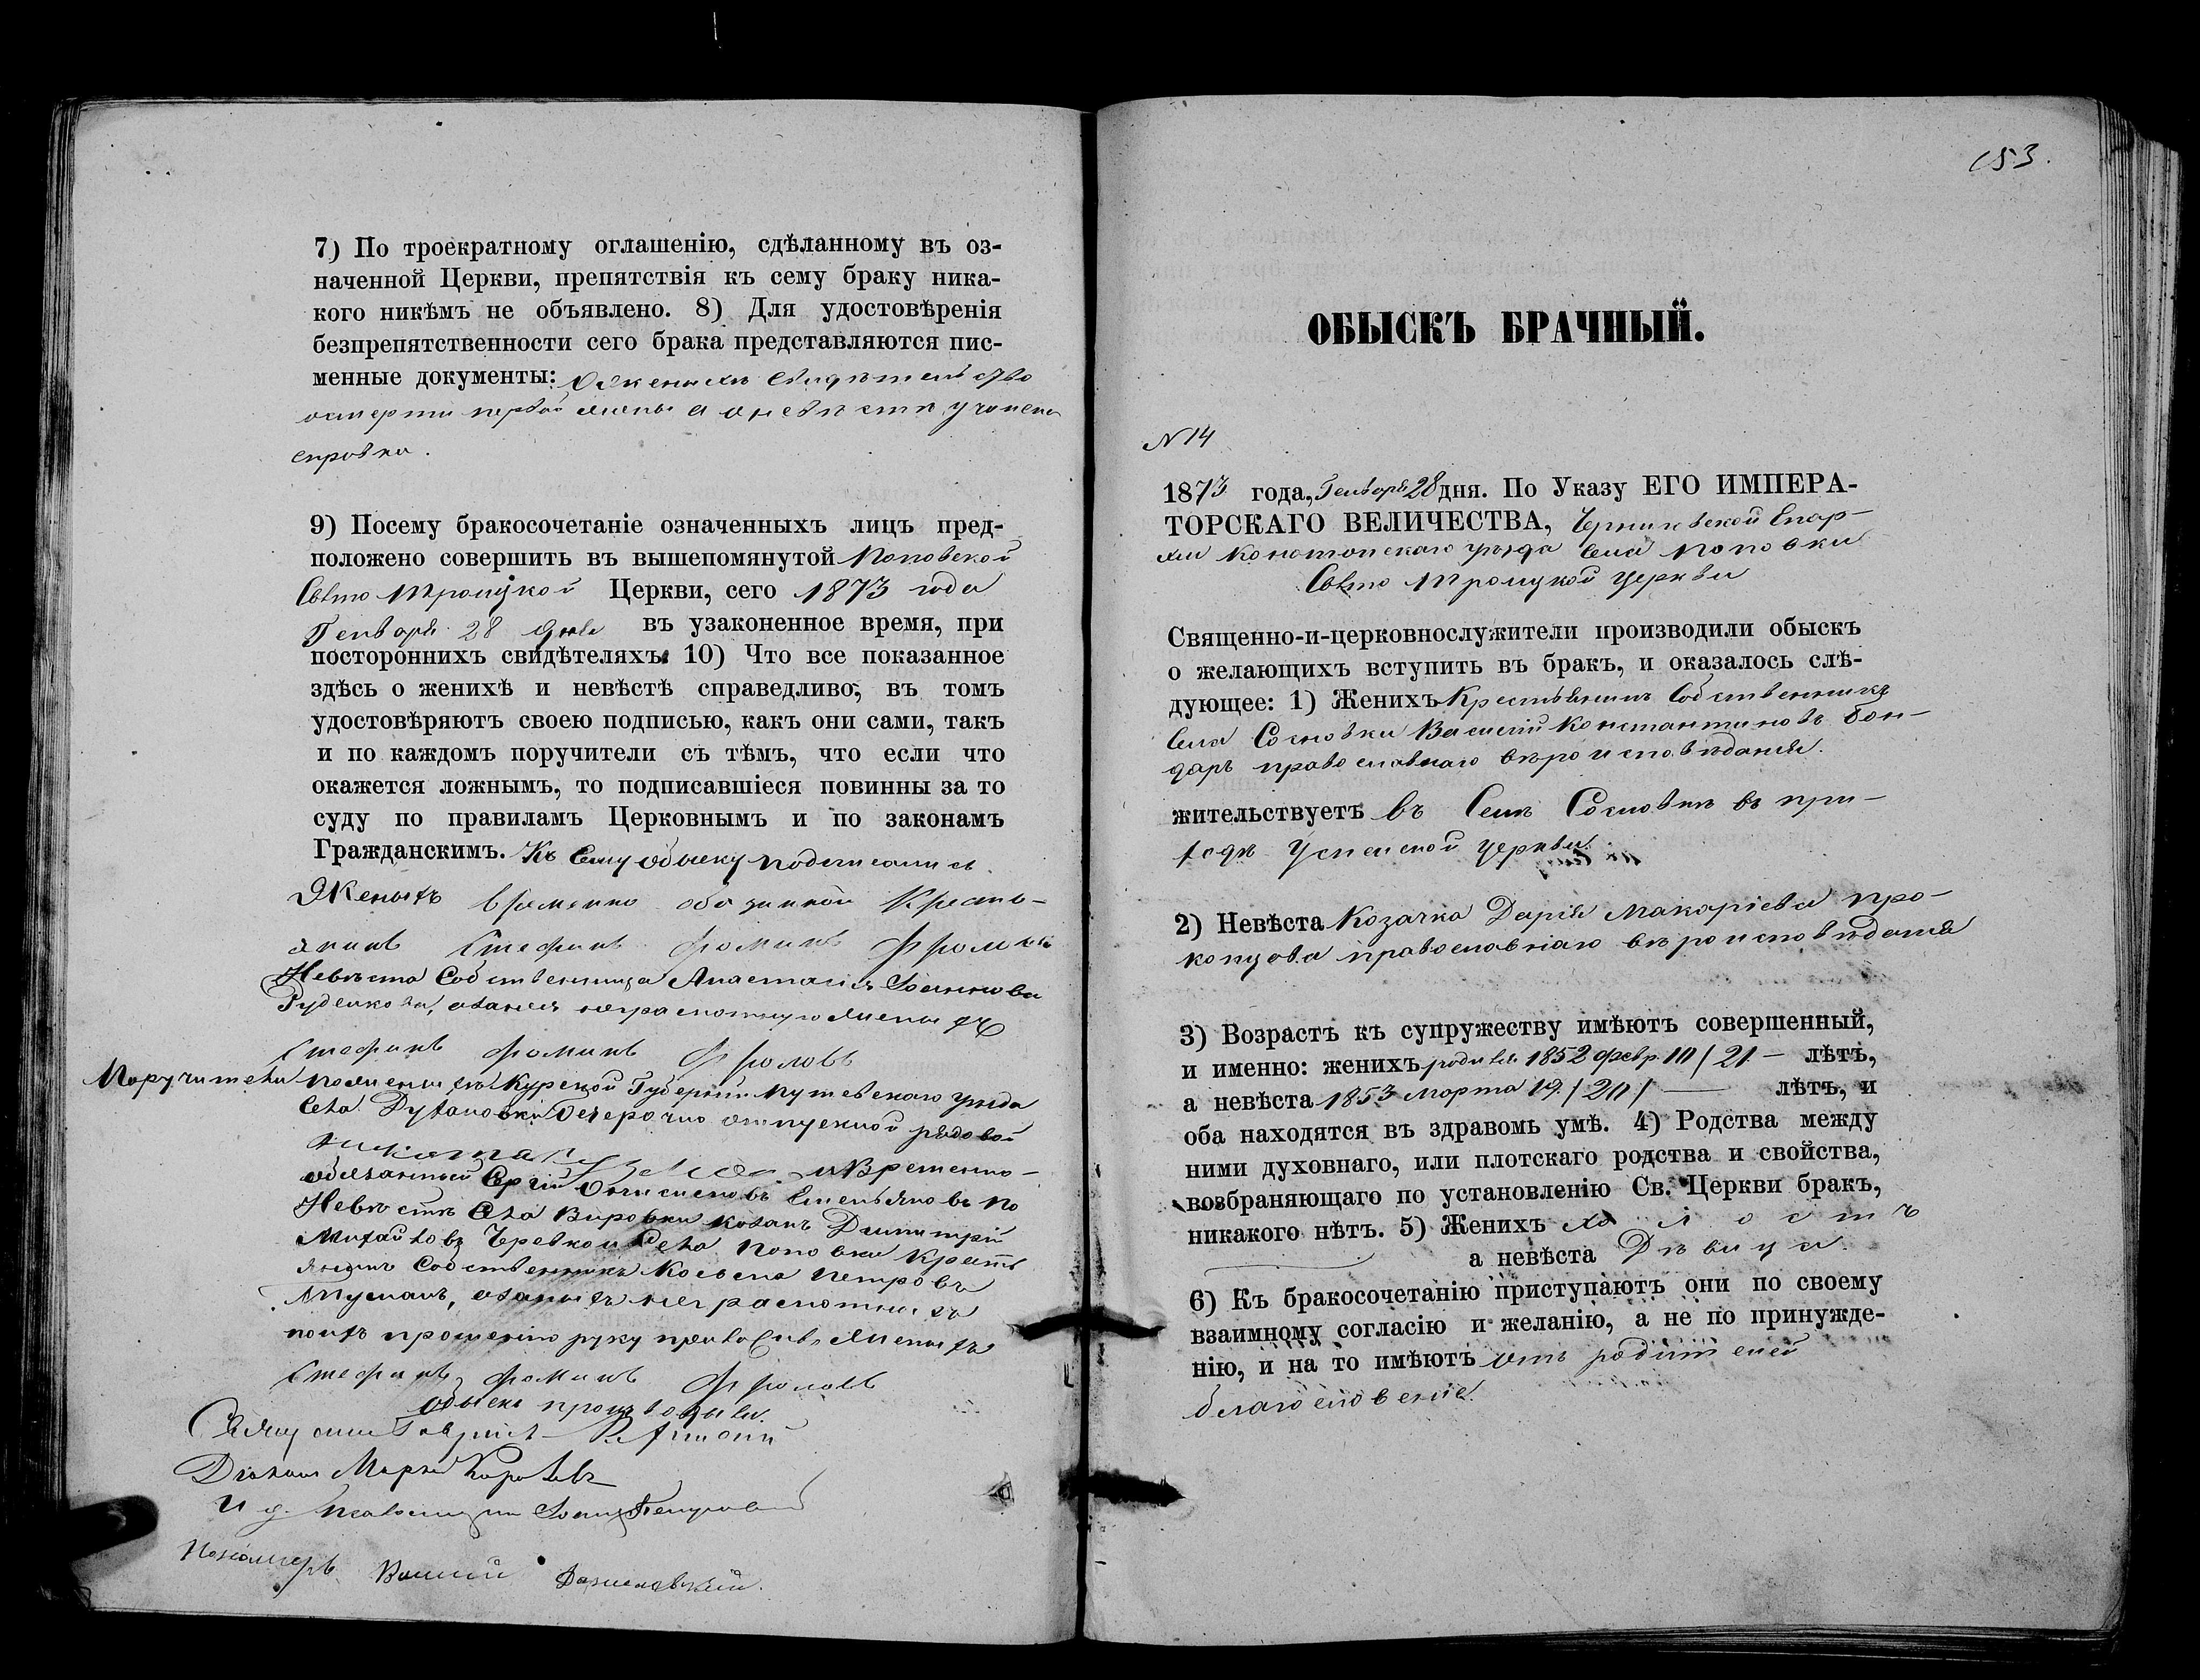 7) По троекратному оглашенію, сдѣланному въ оз-
наченной Церкви, препятствія къ сему браку ника-
кого никѣмъ не объявлено. 8) Для удостовѣренія
безпрепятственности сего брака представляются пис-
менные документы: О женихѣ свидѣтельство
о смерти первой жены а о невѣстѣ учинена
справка.
9) Посему бракосочетаніе означенныхъ лицъ пред-
положено совершить въ вышепомянутой Поповской
Свято Троицкой Церкви, сего 1873 года
Генваря 28 дня въ узаконенное время, при
постороннихъ свидѣтеляхъ. 10) Что все показанное
здѣсь о женихѣ и невѣстѣ справедливо, въ томъ
удостовѣряютъ своею подписью, какъ они сами, такъ
и по каждомъ поручители съ тѣмъ, что если что
окажется ложнымъ, то подписавшіеся повинны за то
суду по правиламъ Церковнымъ и по законамъ
Гражданскимъ. Къ сему обыску подписались
Женихъ временно обязанной Кресть-
янинъ Стефанъ Фоминъ Фроловъ
Невѣста Собственница Анастасія Іоаннова
Руденкова, а за нея неграмотную женихъ
Стефанъ Фоминъ Фроловъ
Поручители по женихѣ Курской Губерніи Путивскаго уѣзда
Села безсрочно отпускной рядовой
и Временно-
обязанный Сергій Онисимовъ Емельяновъ по
Невѣстѣ Села Вировки козакъ Димитрій
Михайловъ Села Поповки Кресть
янинъ Собственникъ Косьма Петровъ
а за нихъ неграмотныхъ
по ихъ прошенію руку приложилъ Женихъ
Стефанъ Фоминъ Фроловъ
Обыскъ производили.
Священникъ Гавріилъ
Діаконъ Марко
И. д. псаломщика Іоаннъ
Пономарь Василій
153.
ОБЫСКЪ БРАЧНЫЙ.
N 14
1873 года, Генваря 28 дня. По Указу ЕГО ИМПЕРА-
ТОРСКАГО ВЕЛИЧЕСТВА, Черниговской Епар-
хіи Конотопскаго уѣзда села Поповки
Свято Троицкой церкви
Священно-и-церковнослужители производили обыскъ
о желающихъ вступить въ бракъ, и оказалось слѣ-
дующее: 1) Женихъ Крестьянинъ Собственникъ
села Сосновки Василій Константиновъ Бон-
даръ православнаго вѣроисповѣданія.
жительствуетъ въ Селѣ Сосновкѣ въ при-
ходѣ Успенской церкви.
2) Невѣста Козачка Дарія Макаріева Про-
копцова православнаго вѣроисповѣданія
3) Возрастъ къ супружеству имѣютъ совершенный,
и именно: женихъ родился 1852 февр. 10 / 21 — лѣтъ,
а невѣста 1853 Марта 19. / 20 / — лѣтъ, и
оба находятся въ здравомъ умѣ. 4) Родства между
ними духовнаго, или плотскаго родства и свойства,
возбраняющаго по установленію Св. Церкви бракъ,
никакого нѣтъ. 5) Женихъ холостъ
а невѣста Дѣвица.
6) Къ бракосочетанію приступаютъ они по своему
взаимному согласію и желанію, а не по принужде-
нію, и на то имѣютъ отъ родителей
благословеніе.